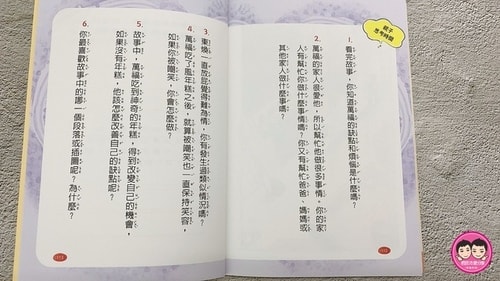 親子
思考時間
1. 看完故事，你知道萬福的缺點和煩惱是什麼嗎？
2. 萬福的家人很愛他，所以幫忙他做很多事情。你的家
人有幫忙你做什麼事情嗎？你又有幫忙爸爸、媽媽或
其他家人做什麼事嗎？
3. 東燒一直放屁覺得難為情，你有發生過類似情況嗎？
4. 萬福吃了風年糕之後，就算被嘲笑也一直保持笑容，
如果你被嘲笑，你會怎麼做？
5. 故事中，萬福吃到神奇的年糕，得到改變自己的機會，
如果沒有年糕，他該怎麼改善自己的缺點呢？
6. 你最喜歡故事中的哪一個段落或插圖呢？為什麼？